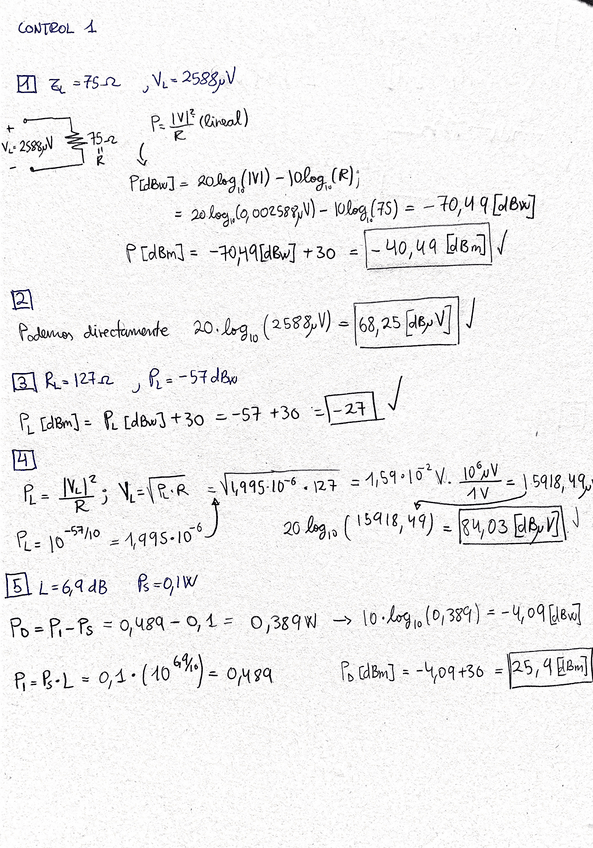 CONTROL 1
1 Z_L = 75Ω , V_L = 2588μV
P = |V|²/R (lineal)
+
V_L = 2588μV
75Ω
=
R
-
P[dBW] = 20log₁₀(|V|) - 10log₁₀(R);
= 20log₁₀(0,002588μV) - 10log₁₀(75) = -70,49 [dBW]
P[dBm] = -70,49[dBW] + 30 = -40,49 [dBm] ✓
2
Podemos directamente 20·log₁₀(2588μV) = 68,25 [dBμV] ✓
3 R_L = 127Ω , P_L = -57 dBW
P_L [dBm] = P_L [dBW] + 30 = -57 + 30 = -27 ✓
4
P_L = |V_L|²/R ; V_L = √(P_L·R) = √(1,995·10⁻⁶ · 127) = 1,59·10⁻² V · 10⁶μV/1V = 15918,49μ
P_L = 10^(-57/10) = 1,995·10⁻⁶
20log₁₀(15918,49) = 84,03 [dBμV] ✓
5 L = 6,9 dB P_S = 0,1W
P_D = P_1 - P_S = 0,489 - 0,1 = 0,389W → 10·log₁₀(0,389) = -4,09 [dBW]
P_1 = P_S·L = 0,1·(10^(6,9/10)) = 0,489
P_D [dBm] = -4,09 + 30 = 25,9 [dBm]